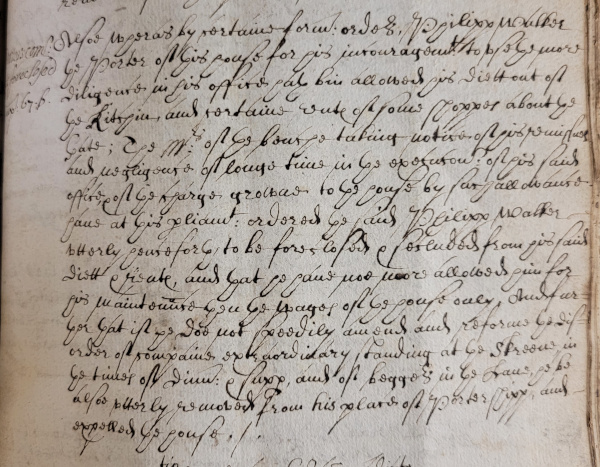 Alsoe wheras by certaine form: orders, Philipp Walker
the Porter of this house for his incouragemt to vse the more
diligence in his office hath bin allowed his diett out of
the Kitchin, and certaine rente of some shoppes about the
Gate; The Mrs of the benche taking notice of his remisnes
and negligence of longe time in the execucon: of his said
office, & of the charge growne to the house by such allowance
haue at this pliamt: ordered the said Philipp Walker
vtterly henceforth, to be foreclosed & secluded from his said
diett & rente, and that he haue noe more allowed him for
his maintennce then the wages of the house only, And fur-
ther that if he doe not speedily amend and reforme the dis-
order of companie extraordinary standing at the Skreene in
the times of Dinn: & Supp, and of beggers in the Lane, he be
alsoe vtterly remoued from his place of Porter shipp, and
expelled the house.